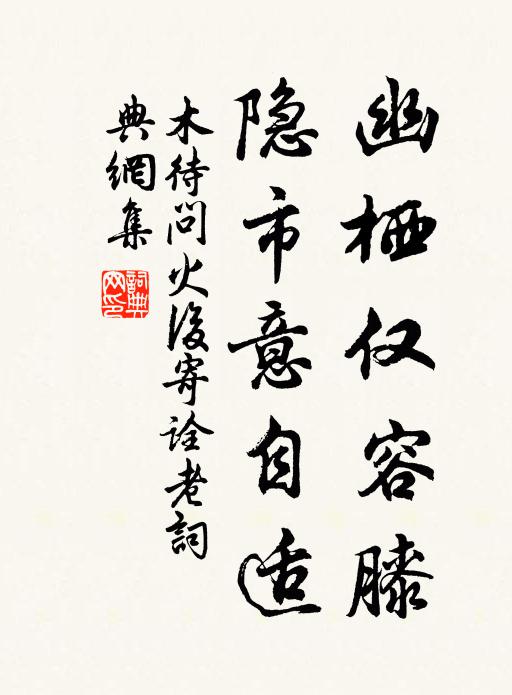 幽栖仅容膝
隐市意自适
木待问火後寄诠老詞
典網集
詞典網印